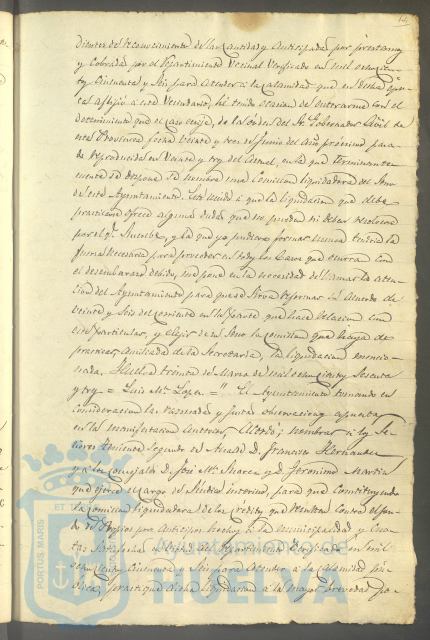 dientes de reconocimiento de las Cantidades Anticipadas por prestamo
y Cobradas por el Repartimiento Vecinal Verificado en mil ochocien-
tos Cincuenta y Seis para atender a la Calamidad que en dicha epo-
ca afligio a este Vecindario, he tenido ocasion de enterarme con el
detenimiento que el caso exije, de la orden del Sr. Gobernador Civil de
esta Provincia fecha Veinte y tres de Junio del Año proximo pasa-
do reproducida en Veinte y tres del Actual, en la que terminante-
mente se dispone se nombre una Comision liquidadora del seno
de este Ayuntamiento
practicarse ofrece algunas dudas que no pueden ni deben resolverse
por el que y la que ya pudiera formar nunca tendria la
fuerza necesaria para proceder en todos los casos que ocurran con
el desembarazo debido, me pone en la necesidad de llamar la aten-
cion del Ayuntamiento para que se sirva reformar su Acuerdo de
veinte y seis del corriente en la parte que hace relacion con
este particular, y elejir de su seno la comision que haya de
practicar, auxiliada de la Secretaria, la liquidacion mencio-
nada. Huelva treinta de Marzo de mil ochocientos sesenta
y tres = Luis Mª Lopez = " El Ayuntamiento tomando en
consideracion las razonadas y justas observaciones espuestas
en la manifestacion anterior, Acordó; nombrar a los Se-
ñores Teniente segundo de Alcalde D. Francisco Hernandez
y a los Concejales D. José Mª Suarez y D. Jeronimo Martin
que ejerce el cargo de Sindico interino, para que Constituyendo
la comision liquidadora de los Creditos que resulten Contra el fon-
do de Propios por Anticipos hechos a la municipalidad y Cuo-
tas satisfechas en Virtud del Repartimiento Verificado en mil
ochocientos Cincuenta y Seis para atender a la Calamidad pu-
blica, practique dicha liquidacion a la mayor brevedad po-
ET
PORTUS MARIS
Ayuntamiento de
HUELVA